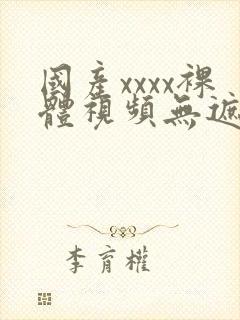 國產xxxx裸
體視頻無遮
李育權